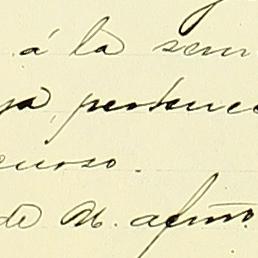 á la sem
ya, pertenec
curso.
de M. afmo.